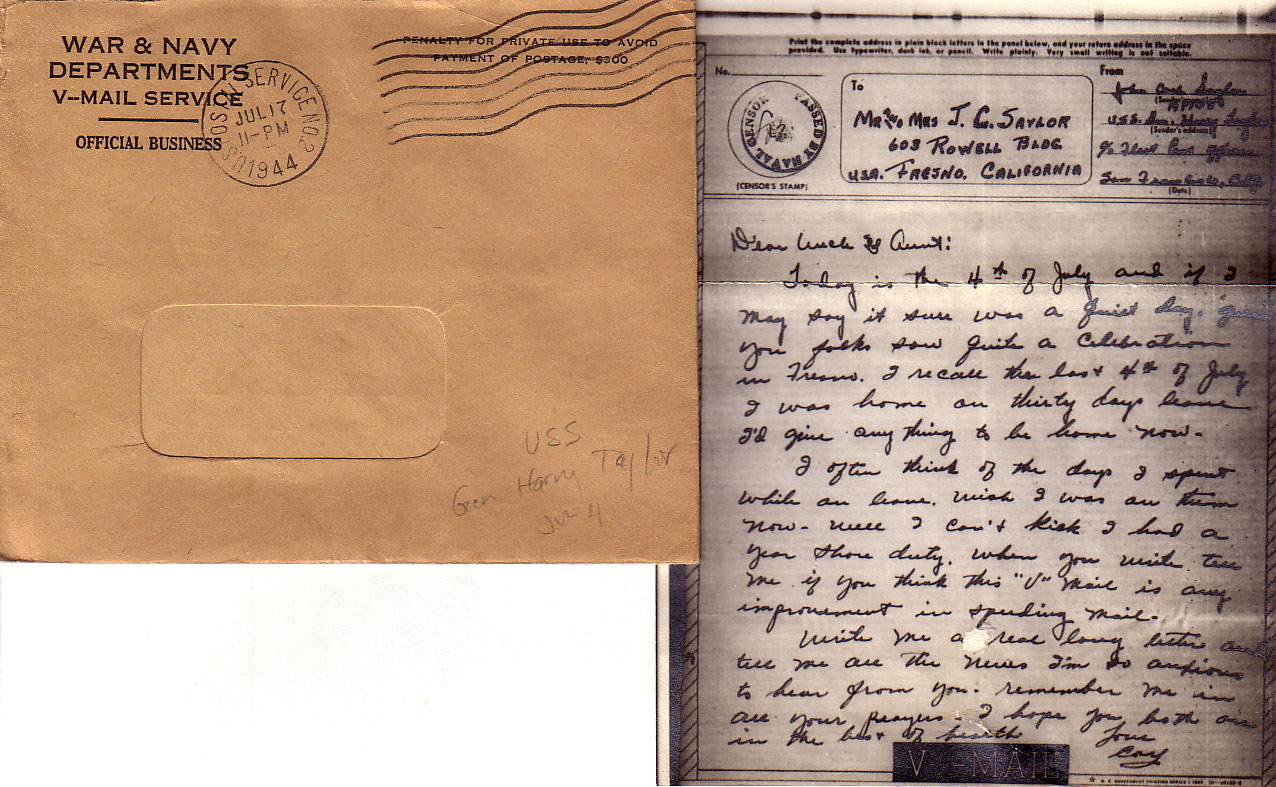 WAR & NAVY
DEPARTMENTS
V--MAIL SERVICE
OFFICIAL BUSINESS
U.S. POSTAL SERVICE NO. 2
JUL 17
11-PM
1944
PENALTY FOR PRIVATE USE TO AVOID
PAYMENT OF POSTAGE, $300
USS
Gen Harry Taylor
Print the complete address in plain block letters in the panel below, and your return address in the space
provided. Use typewriter, dark ink, or pencil. Write plainly. Very small writing is not suitable.
No.
PASSED BY NAVAL CENSOR
(CENSOR'S STAMP)
To
MR. & MRS J. C. SAYLOR
603 ROWELL BLDG.
USA. FRESNO, CALIFORNIA
From
John Saylor
U.S.S. Gen. Harry Taylor
(Sender's address)
c/o Fleet Post Office
San Francisco, Calif
(Date)
Dear Uncle & Aunt:
Today is the 4th of July and if I
may say it sure was a quiet day. guess
you folks saw quite a celebration
in Fresno. I recall the last 4th of July
I was home on thirty days leave
I'd give anything to be home now-
I often think of the days I spent
while on leave. wish I was on them
now- well I can't kick I had a
year shore duty. when you write tell
me if you think this "V" Mail is any
improvement in speeding mail-
Write me a real long letter and
tell me all the news I'm so anxious
to hear from you. remember me in
all your prayers. I hope you both are
in the best of health
Love
V - MAIL